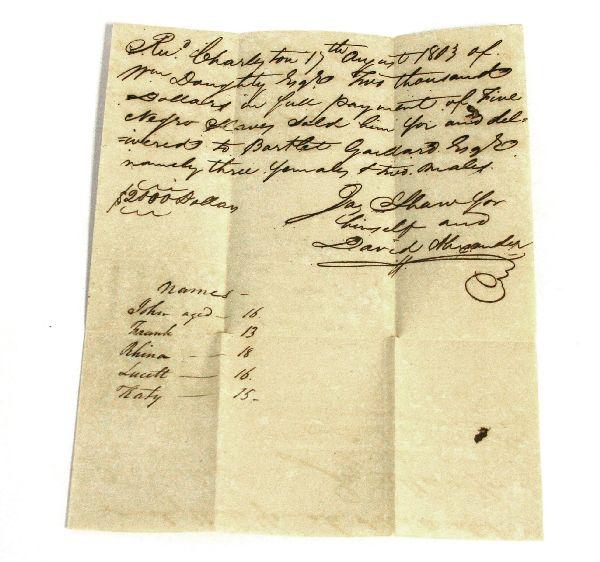 Rec.d Charleston 17th August 1803 of
Wm Doughty Esqr. Two thousand
Dollars in full payment of Five
Negro Slaves sold him for and del-
-ivered to Bartlet Gaillard Esqr.
namely three females & two males.
$2000 Dollars
Jas Shaw for
himself and
David Alexander
names -
John aged - 16
Frank 13
Rhina - - 18
Lucett - 16.
Katy - 15 -